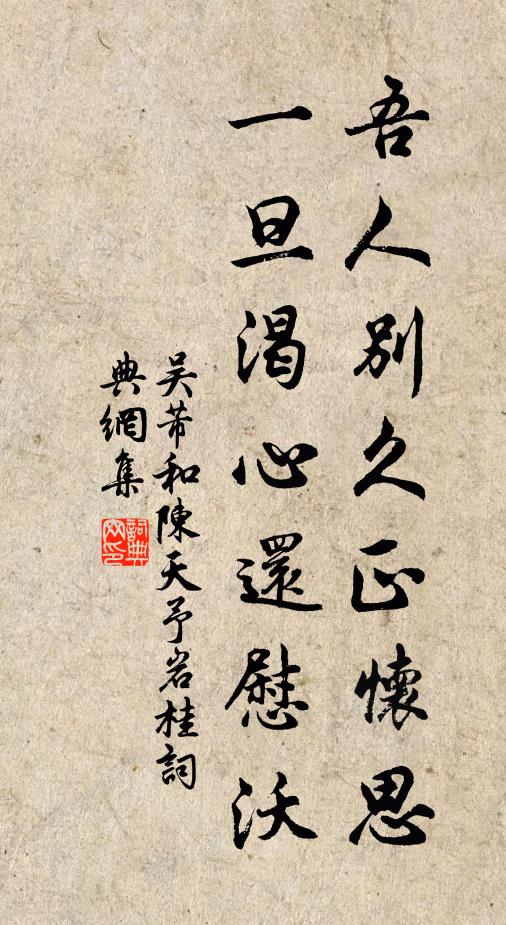 吾人別久正懷思
一旦渴心還慰沃
吳芾和陳天予岩桂詞
典網集
詞典網印